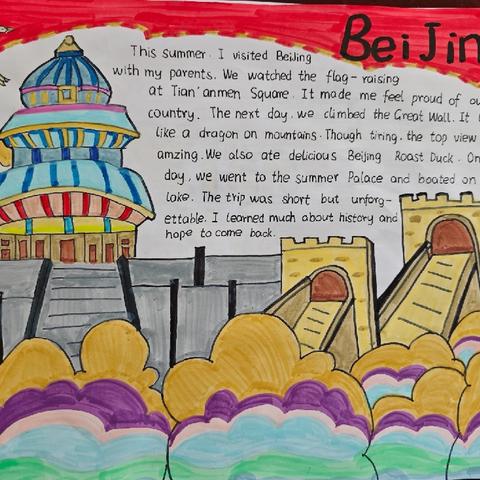 BeiJin
This summer. I visited BeiJing
with my parents. We watched the flag-raising
at Tian'anmen Square. It made me feel proud of
country. The next day, we climbed the Great Wall. It
like a dragon on mountains. Though tiring, the top view
amzing. We also ate delicious Beijing Roast Duck.
day, we went to the summer Palace and boated on
lake. The trip was short but unforg-
ettable. I learned much about history and
hope to come back.